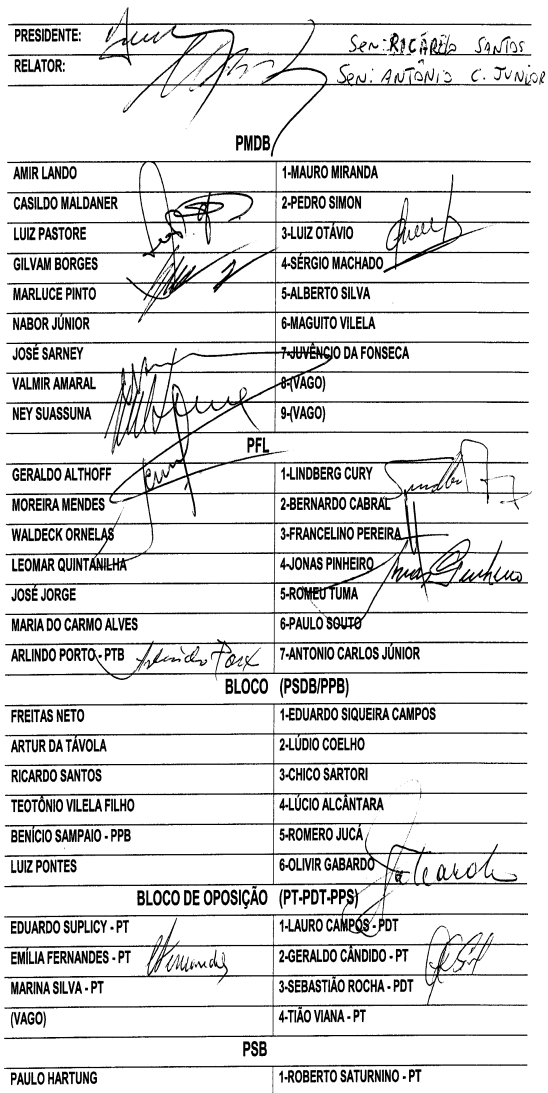 PRESIDENTE: Sen: RICARDO SANTOS
RELATOR: Sen: ANTÔNIO C. JUNIOR
PMDB
AMIR LANDO 1-MAURO MIRANDA
CASILDO MALDANER 2-PEDRO SIMON
LUIZ PASTORE 3-LUIZ OTÁVIO
GILVAM BORGES 4-SÉRGIO MACHADO
MARLUCE PINTO 5-ALBERTO SILVA
NABOR JÚNIOR 6-MAGUITO VILELA
JOSÉ SARNEY 7-JUVÊNCIO DA FONSECA
VALMIR AMARAL 8-(VAGO)
NEY SUASSUNA 9-(VAGO)
PFL
GERALDO ALTHOFF 1-LINDBERG CURY
MOREIRA MENDES 2-BERNARDO CABRAL
WALDECK ORNELAS 3-FRANCELINO PEREIRA
LEOMAR QUINTANILHA 4-JONAS PINHEIRO Jonas Pinheiro
JOSÉ JORGE 5-ROMEU TUMA
MARIA DO CARMO ALVES 6-PAULO SOUTO
ARLINDO PORTO - PTB Arlindo Porto 7-ANTONIO CARLOS JÚNIOR
BLOCO (PSDB/PPB)
FREITAS NETO 1-EDUARDO SIQUEIRA CAMPOS
ARTUR DA TÁVOLA 2-LÚDIO COELHO
RICARDO SANTOS 3-CHICO SARTORI
TEOTÔNIO VILELA FILHO 4-LÚCIO ALCÂNTARA
BENÍCIO SAMPAIO - PPB 5-ROMERO JUCÁ
LUIZ PONTES 6-OLIVIR GABARDO
BLOCO DE OPOSIÇÃO (PT-PDT-PPS)
EDUARDO SUPLICY - PT 1-LAURO CAMPOS - PDT
EMÍLIA FERNANDES - PT 2-GERALDO CÂNDIDO - PT
MARINA SILVA - PT 3-SEBASTIÃO ROCHA - PDT
(VAGO) 4-TIÃO VIANA - PT
PSB
PAULO HARTUNG 1-ROBERTO SATURNINO - PT